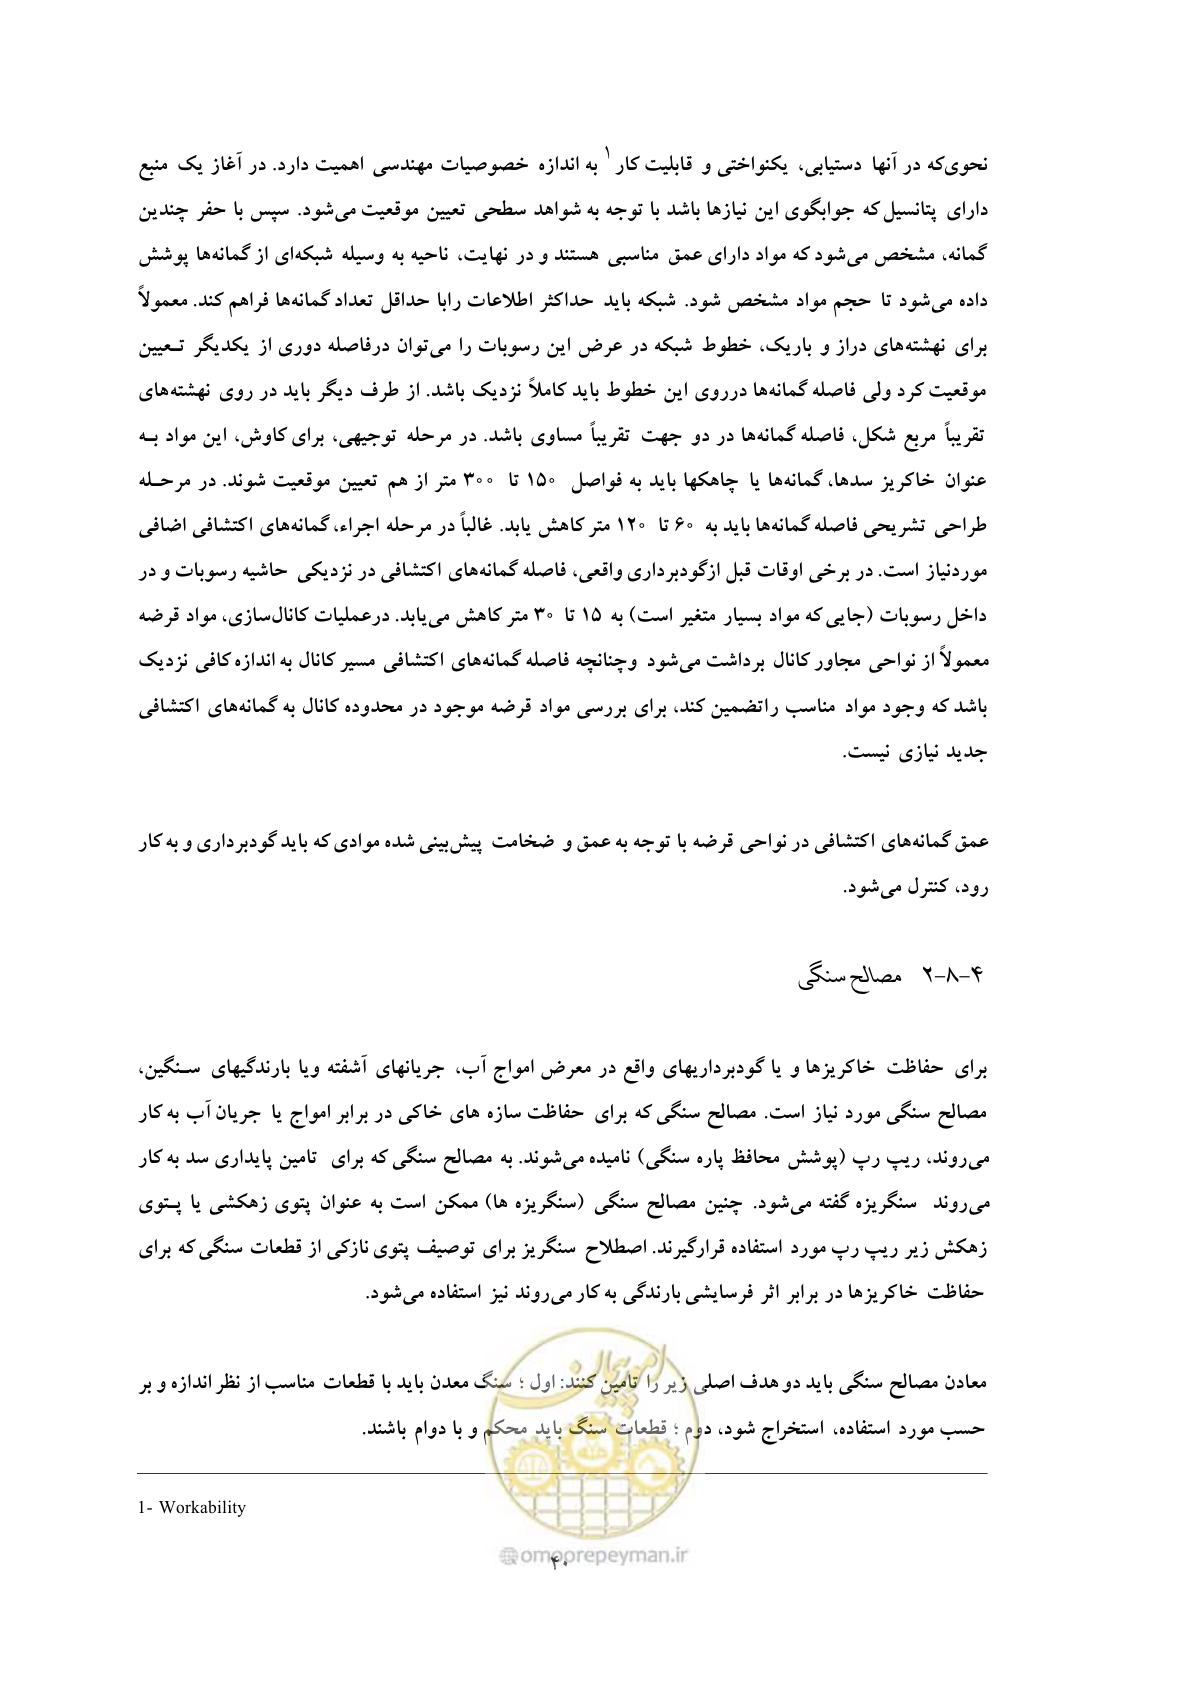 نحوی‌که در آنها دستیابی، یکنواختی و قابلیت کار۱ به اندازه خصوصیات مهندسی اهمیت دارد. در آغاز یک منبع
دارای پتانسیل که جوابگوی این نیازها باشد با توجه به شواهد سطحی تعیین موقعیت می‌شود. سپس با حفر چندین
گمانه، مشخص می‌شود که مواد دارای عمق مناسبی هستند و در نهایت، ناحیه به وسیله شبکه‌ای از گمانه‌ها پوشش
داده می‌شود تا حجم مواد مشخص شود. شبکه باید حداکثر اطلاعات رابا حداقل تعداد گمانه‌ها فراهم کند. معمولاً
برای نهشته‌های دراز و باریک، خطوط شبکه در عرض این رسوبات را می‌توان درفاصله دوری از یکدیگر تـعیین
موقعیت کرد ولی فاصله گمانه‌ها درروی این خطوط باید کاملاً نزدیک باشد. از طرف دیگر باید در روی نهشته‌های
تقریباً مربع شکل، فاصله گمانه‌ها در دو جهت تقریباً مساوی باشد. در مرحله توجیهی، برای کاوش، این مواد بـه
عنوان خاکریز سدها، گمانه‌ها یا چاهکها باید به فواصل ۱۵۰ تا ۳۰۰ متر از هم تعیین موقعیت شوند. در مرحـله
طراحی تشریحی فاصله گمانه‌ها باید به ۶۰ تا ۱۲۰ متر کاهش یابد. غالباً در مرحله اجراء، گمانه‌های اکتشافی اضافی
موردنیاز است. در برخی اوقات قبل ازگودبرداری واقعی، فاصله گمانه‌های اکتشافی در نزدیکی حاشیه رسوبات و در
داخل رسوبات (جایی‌که مواد بسیار متغیر است) به ۱۵ تا ۳۰ متر کاهش می‌یابد. درعملیات کانال‌سازی، مواد قرضه
معمولاً از نواحی مجاور کانال برداشت می‌شود وچنانچه فاصله گمانه‌های اکتشافی مسیر کانال به اندازه کافی نزدیک
باشد که وجود مواد مناسب راتضمین کند، برای بررسی مواد قرضه موجود در محدوده کانال به گمانه‌های اکتشافی
جدید نیازی نیست.
عمق گمانه‌های اکتشافی در نواحی قرضه با توجه به عمق و ضخامت پیش‌بینی شده موادی که باید گودبرداری و به کار
رود، کنترل می‌شود.
۲-۸-۴ مصالح سنگی
برای حفاظت خاکریزها و یا گودبرداریهای واقع در معرض امواج آب، جریانهای آشفته ویا بارندگیهای سـنگین،
مصالح سنگی مورد نیاز است. مصالح سنگی که برای حفاظت سازه های خاکی در برابر امواج یا جریان آب به کار
می‌روند، ریپ رپ (پوشش محافظ پاره سنگی) نامیده می‌شوند. به مصالح سنگی که برای تامین پایداری سد به کار
می‌روند سنگریزه گفته می‌شود. چنین مصالح سنگی (سنگریزه ها) ممکن است به عنوان پتوی زهکشی یا پـتوی
زهکش زیر ریپ رپ مورد استفاده قرارگیرند. اصطلاح سنگریز برای توصیف پتوی نازکی از قطعات سنگی که برای
حفاظت خاکریزها در برابر اثر فرسایشی بارندگی به کار می‌روند نیز استفاده می‌شود.
معادن مصالح سنگی باید دو هدف اصلی زیر را تامین کنند: اول ؛ سنگ معدن باید با قطعات مناسب از نظر اندازه و بر
حسب مورد استفاده، استخراج شود، دوم ؛ قطعات سنگ باید محکم و با دوام باشند.
1- Workability
امور پیمان
@omoorepeyman.ir
۴۰